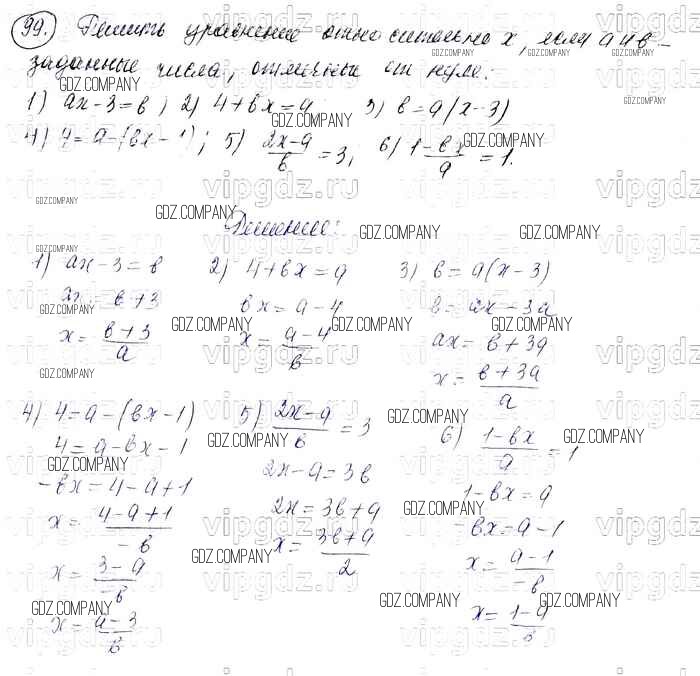 99. Решить уравнение относительно x, если a и b –
заданные числа, отличны от нуля.
1) ax-3=b; 2) 4+bx=a 3) b=a(x-3)
4) 4=a-(bx-1); 5) (2x-a)/b=3; 6) (1-bx)/a=1.
Решение:
1) ax-3=b 2) 4+bx=a 3) b=a(x-3)
ax=b+3 bx=a-4 b=ax-3a
x=(b+3)/a x=(a-4)/b ax=b+3a
x=(b+3a)/a
4) 4=a-(bx-1) 5) (2x-a)/b=3 6) (1-bx)/a=1
4=a-bx-1 2x-a=3b 1-bx=a
-bx=4-a+1 2x=3b+a -bx=a-1
x=(4-a+1)/-b x=(3b+a)/2 x=(a-1)/-b
x=(3-a)/-b x=(1-a)/b
x=(a-3)/b
GDZ.COMPANY
vipgdz.ru